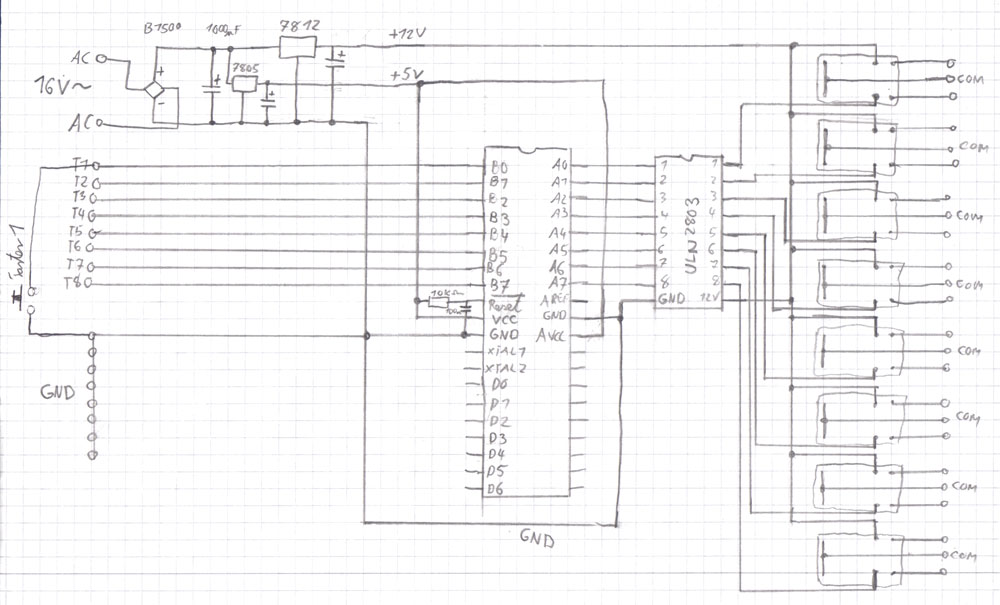 B1500
1000µF
7812
+12V
AC
16V~
7805
+5V
AC
COM
T1
T2
T3
T4
T5
T6
T7
T8
B0
B1
B2
B3
B4
B5
B6
B7
Reset
VCC
GND
XTAL1
XTAL2
D0
D1
D2
D3
D4
D5
D6
A0
A1
A2
A3
A4
A5
A6
A7
AREF
GND
AVCC
1
2
3
4
5
6
7
8
GND
ULN 2803
1
2
3
4
5
6
7
8
12V
COM
COM
COM
COM
COM
COM
COM
Taster 1
10KΩ
GND
GND